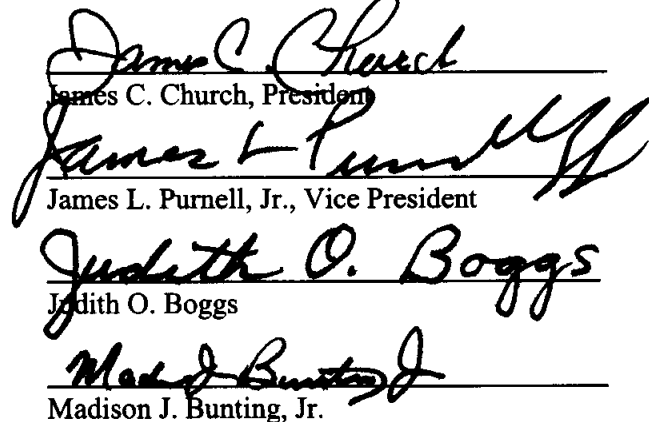 James C. Church
James C. Church, President
James L Purnell Jr
James L. Purnell, Jr., Vice President
Judith O. Boggs
Judith O. Boggs
Madison J Bunting Jr
Madison J. Bunting, Jr.